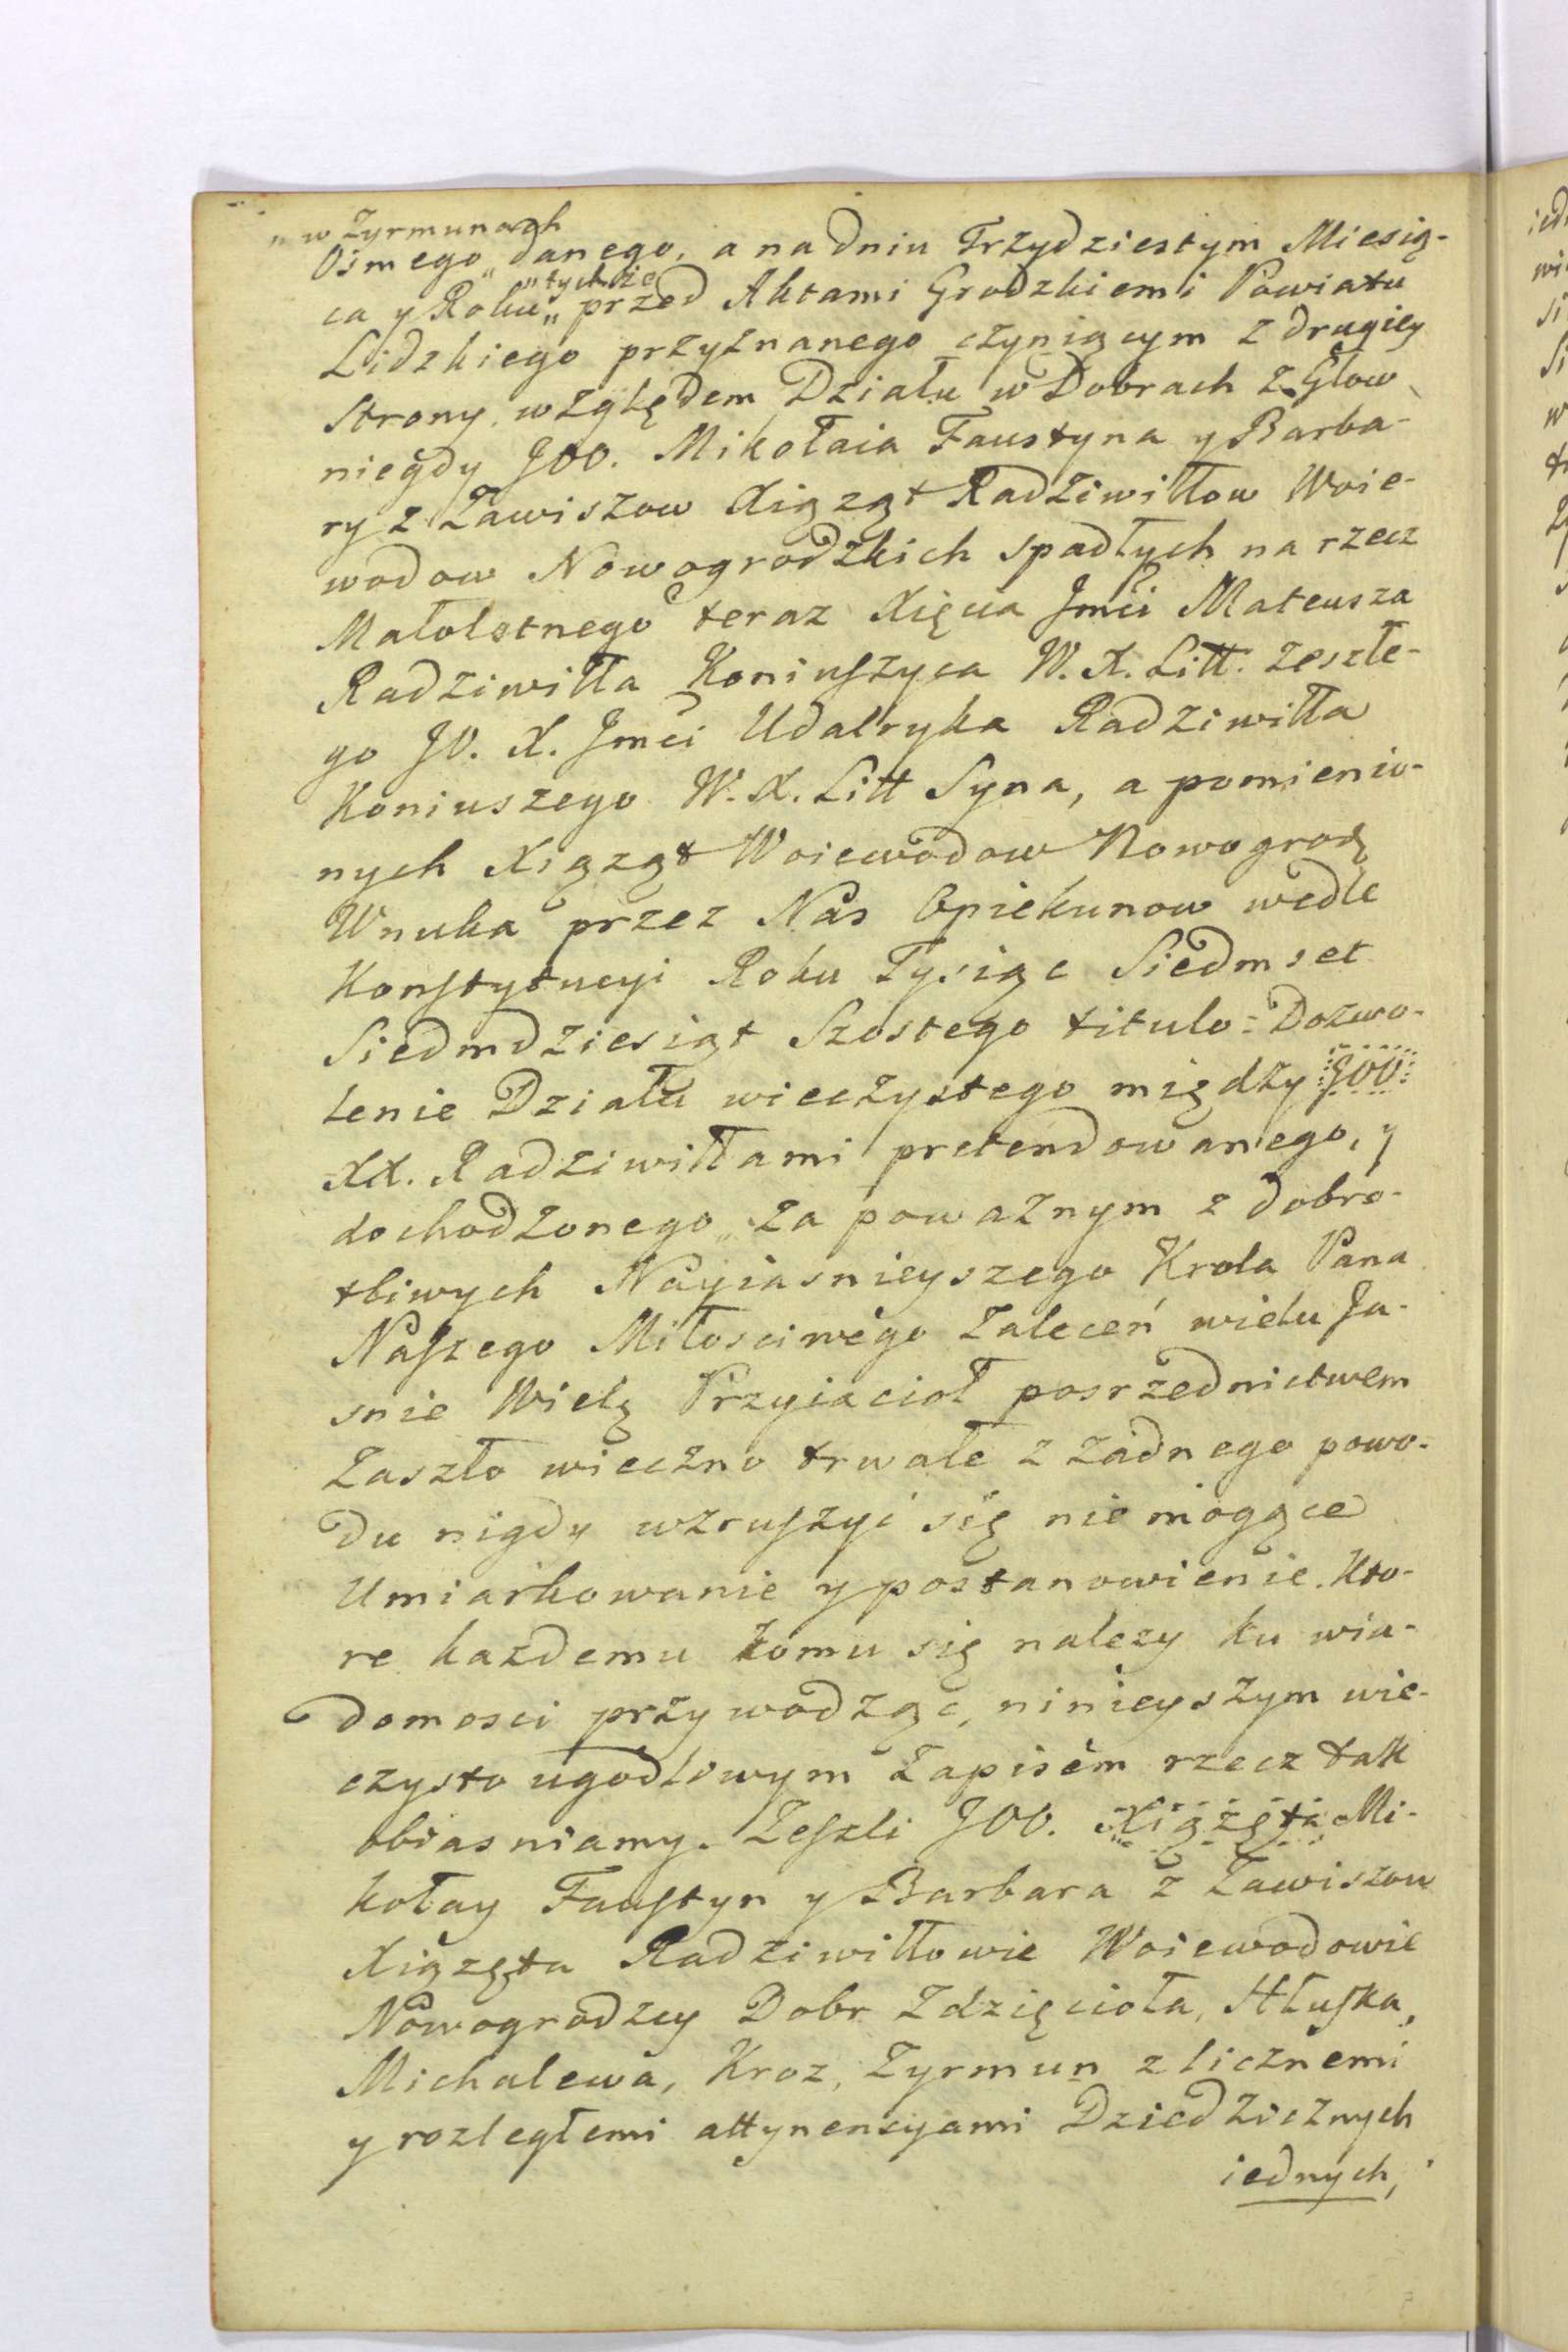 „ w Zyrmunach
Osmego „ danego, a na dniu Trzydziestym Miesią-
„ tychże
ca y Roku „ przed Aktami Grodzkiemi Powiatu
Lidzkiego przyznanego czyniącym z drugiey
Strony, względem Działu w Dobrach z Głow
niegdy JOO. Mikołaia Faustyna y Barba-
ry z Zawiszow Xiążąt Radziwiłłow Woie-
wodow Nowogrodzkich spadłych na rzecz
Małoletnego teraz Xięcia Jmći Mateusza
Radziwiłła Koniuszyca W. X. Litt. zeszłe-
go JO. X. Jmći Udalryka Radziwiłła
Koniuszego W. X. Litt Syna, a pomienio-
nych Xiążąt Woiewodow Nowogrodz
Wnuka przez Nas Opiekunow wedle
Konstytucyi Roku Tysiąc Siedmset
Siedmdziesiąt Szostego titulo = Dozwo-
lenie Działu wieczystego między JOO
XX. Radziwiłłami pretendowanego, y
dochodzonego „ za poważnym z dobro-
tliwych Nayiasnieyszego Krola Pana
Naszego Miłosciwego Zaleceń wielu Ja-
snie Wielą Przyiacioł posrzednictwem
Zaszło wieczno trwałe z żadnego powo-
du nigdy wzruszyć się nie mogące
Umiarkowanie y postanowienie. Kto-
re każdemu komu się należy ku wia-
domosci przywodząc, ninieyszym wie-
czysto ugodliwym Zapisem rzecz tak
obiasniamy. Zeszli JOO. Xiążęta Mi-
kołay Faustyn y Barbara z Zawiszow
Xiążęta Radziwiłłowie Woiewodowie
Nowogrodzcy Dobr Zdzięcioła, Hłuska,
Michalewa, Kroz, Zyrmun z licznemi
y rozległemi attynencyami Dziedzicznych
iednych,